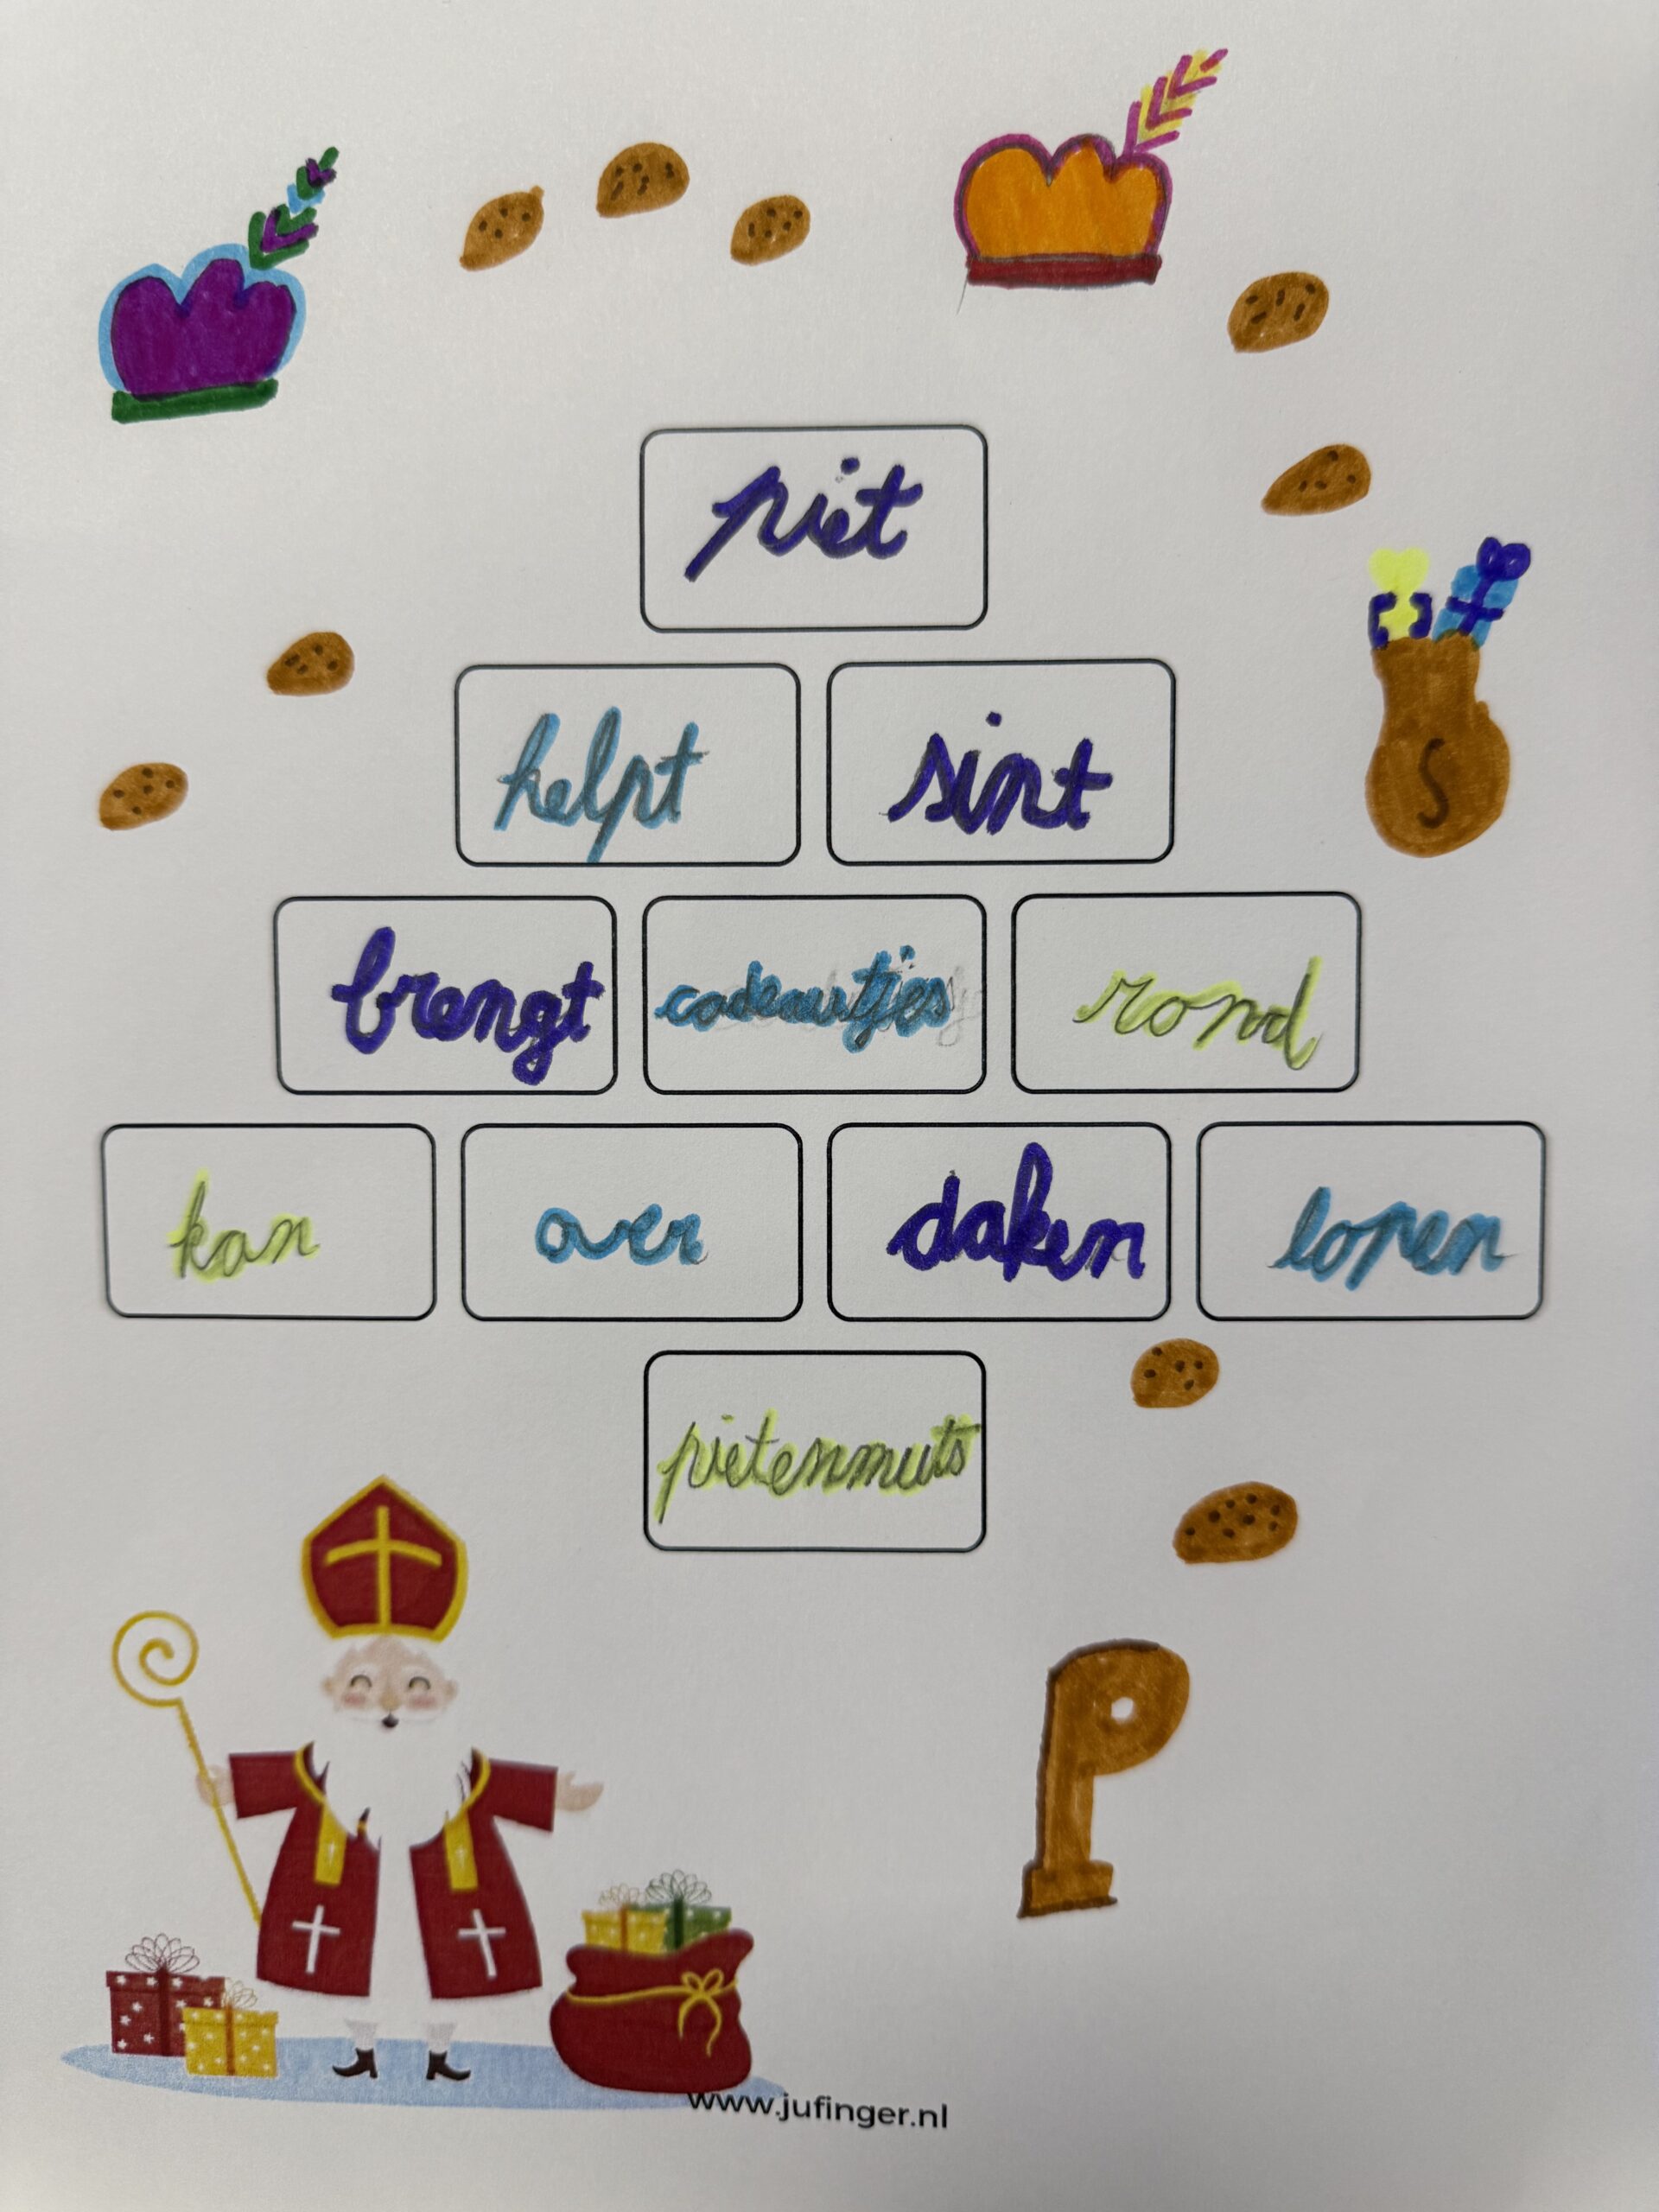 piet
helpt sint
brengt cadeautjes rond
kan over daken lopen
pietenmuts
S
P
www.jufinger.nl